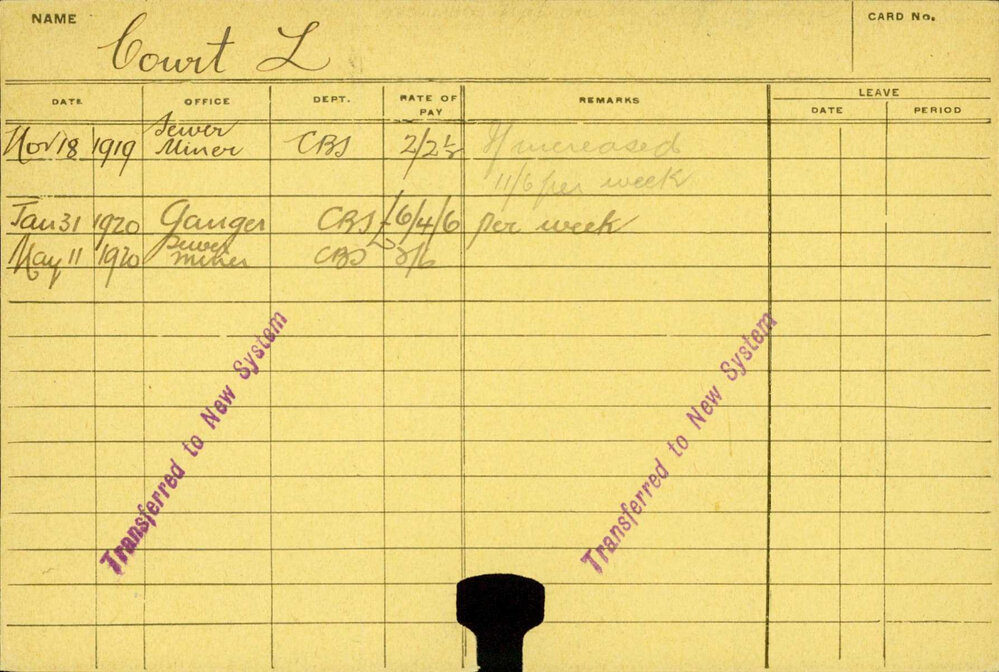 NAME
Court L
CARD No.
DATE OFFICE DEPT. RATE OF PAY REMARKS LEAVE
DATE PERIOD
Nov 18 1919 Sewer Miner CBS 2/2½ If increased
11/6 per week
Jan 31 1920 Ganger CBS £6/4/6 per week
May 11 1920 Sewer miner CBS
Transferred to New System
Transferred to New System